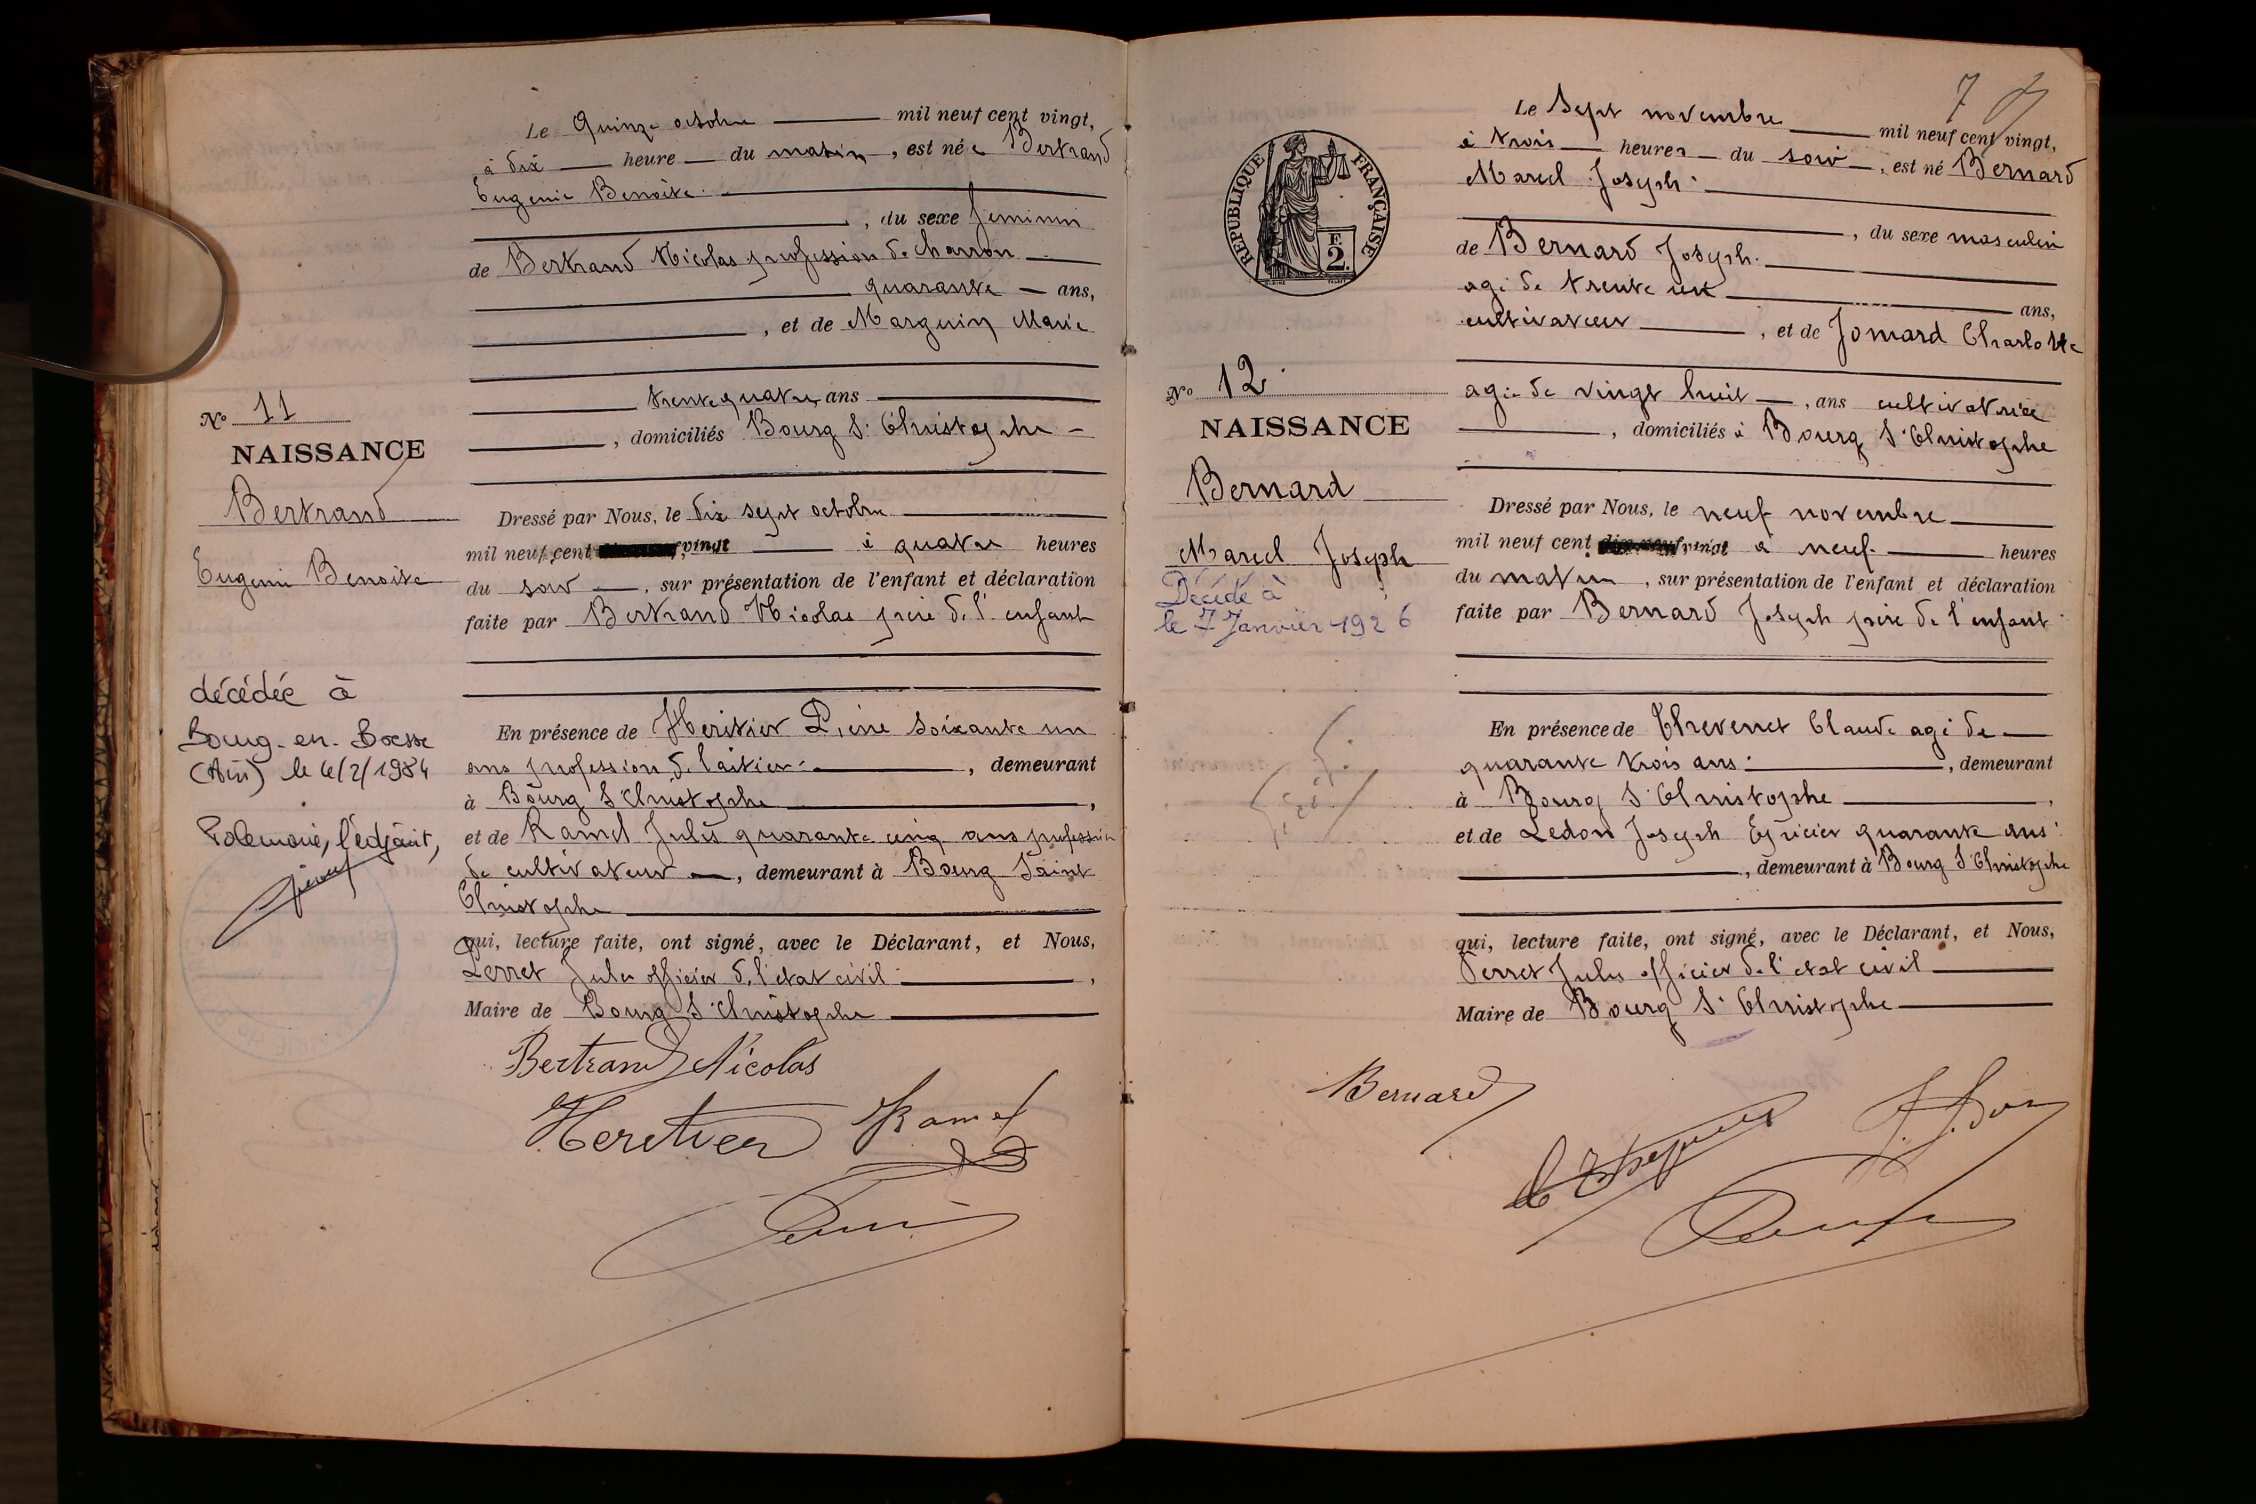 Le Quinze octobre mil neuf cent vingt,
à dix heure du matin, est née Bertrand
Eugenie Benoite
, du sexe feminin
de Bertrand Nicolas profession de charron
quarante ans,
, et de Marguin Marie
trente quatre ans
, domiciliés Bourg St Christophe
No 11
NAISSANCE
Bertrand
Eugenie Benoite
Dressé par Nous, le dix sept octobre
mil neuf cent vingt à quatre heures
du soir, sur présentation de l'enfant et déclaration
faite par Bertrand Nicolas père de l'enfant
décédée à
Bourg-en-Bresse
(Ain) le 4/2/1984
l'adjoint,
En présence de Heritier Pierre soixante un
ans profession de laitier, demeurant
à Bourg St Christophe,
et de Ramel Jules quarante cinq ans profession
de cultivateur, demeurant à Bourg Saint
Christophe
qui, lecture faite, ont signé, avec le Déclarant, et Nous,
Perret Jules officier de l'etat civil,
Maire de Bourg St Christophe
Bertrand Nicolas
Heretier Ramel
7
Le Sept novembre mil neuf cent vingt,
à trois heures du soir, est né Bernard
Marcel Joseph
, du sexe masculin
de Bernard Joseph
agé de trente un ans,
cultivateur, et de Jomard Charlotte
agée de vingt huit, ans cultivatrice
, domiciliés à Bourg St Christophe
RÉPUBLIQUE FRANÇAISE
F.
2.
No 12
NAISSANCE
Bernard
Marcel Joseph
Décédé à
le 7 Janvier 1926
Dressé par Nous, le neuf novembre
mil neuf cent vingt à neuf heures
du matin, sur présentation de l'enfant et déclaration
faite par Bernard Joseph père de l'enfant
En présence de Thevenet Claude agé de
quarante trois ans, demeurant
à Bourg St Christophe,
et de Ledon Joseph Epicier quarante ans
, demeurant à Bourg St Christophe
qui, lecture faite, ont signé, avec le Déclarant, et Nous,
Perret Jules officier de l'etat civil
Maire de Bourg St Christophe
Bernard